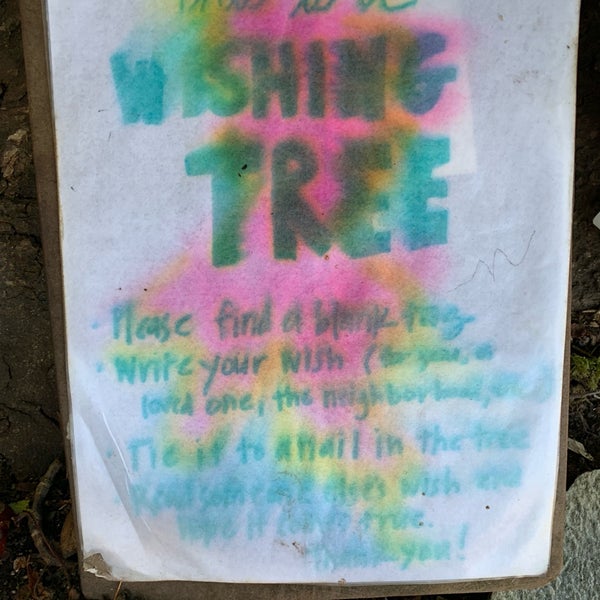 WISHING
TREE
• Please find a blank tag
• Write your wish (for you, a
loved one, the neighborhood,
• Tie it to a nail in the tree
Read someone else's wish and
hope it comes true.
Thank you!